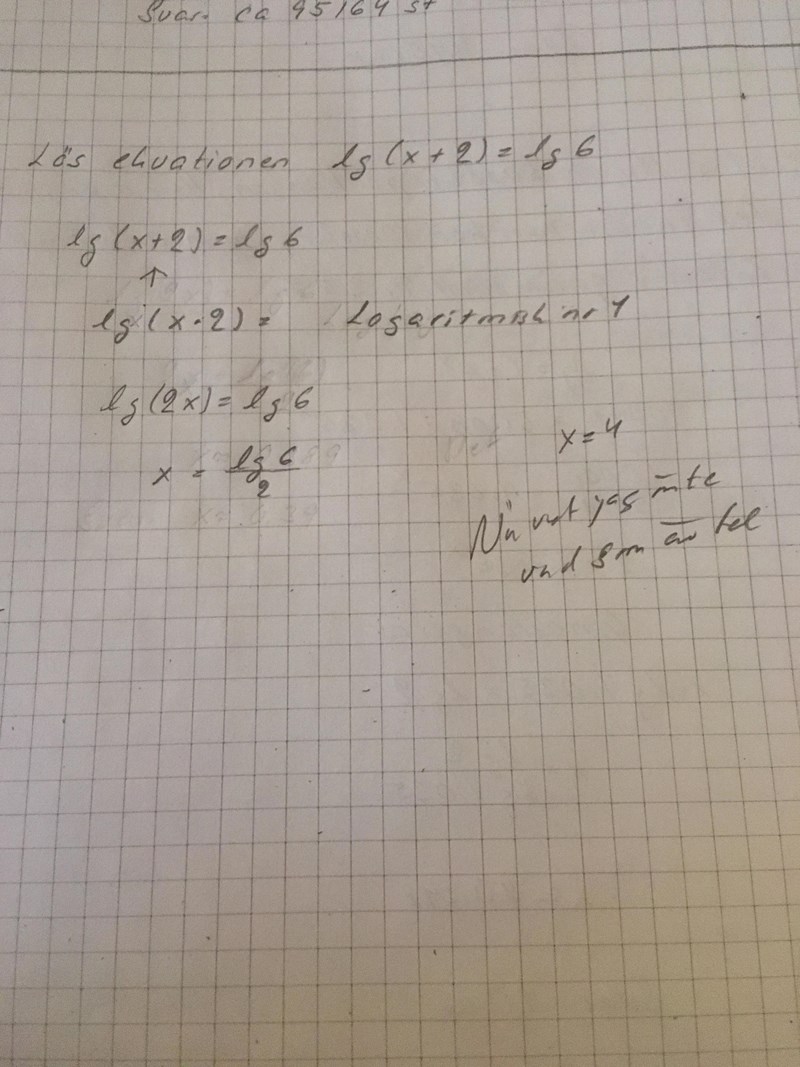 Svar. ca 95164 st
Lös ekvationen lg(x+2)=lg6
lg(x+2)=lg6
↑
lg(x·2)= Logaritmisk nr 1
lg(2x)=lg6
x = lg6/2
x=4
Nu vet jag inte
vad som är fel